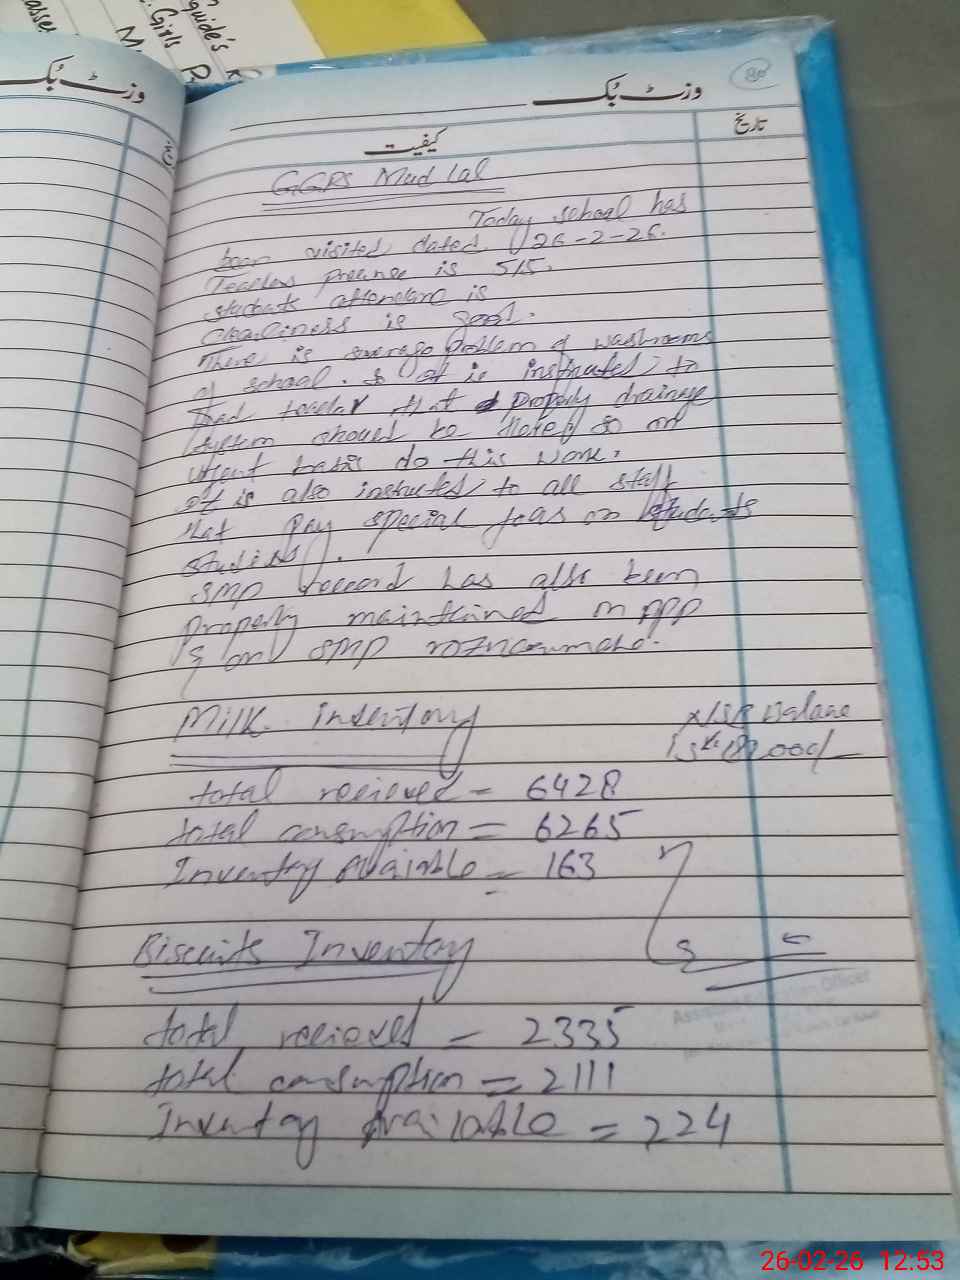 guide's
Girls
80
وزٹ بُک
وزٹ بُک
تاریخ
کیفیت
GGPS Mud lal
Today school has
been visited dated 26-2-26.
Teachers presence is 5/5.
students attendance is
cleanliness is good.
There is problem of washrooms
of school. & it is instructed to
head teacher that properly drainage
system should be so on
urgent basis do this work.
it is also instructed to all staff
that pay special focus on students
studies.
SMP record has also been
properly maintained on app
& on SMP
Milk inventory
NSB Balance
is
total recieved = 6428
total consumption = 6265
Inventory available = 163
Biscuits Inventory
Assistant Education Officer
total recieved = 2335
total consumption = 2111
Inventory Available = 224
26-02-26 12:53